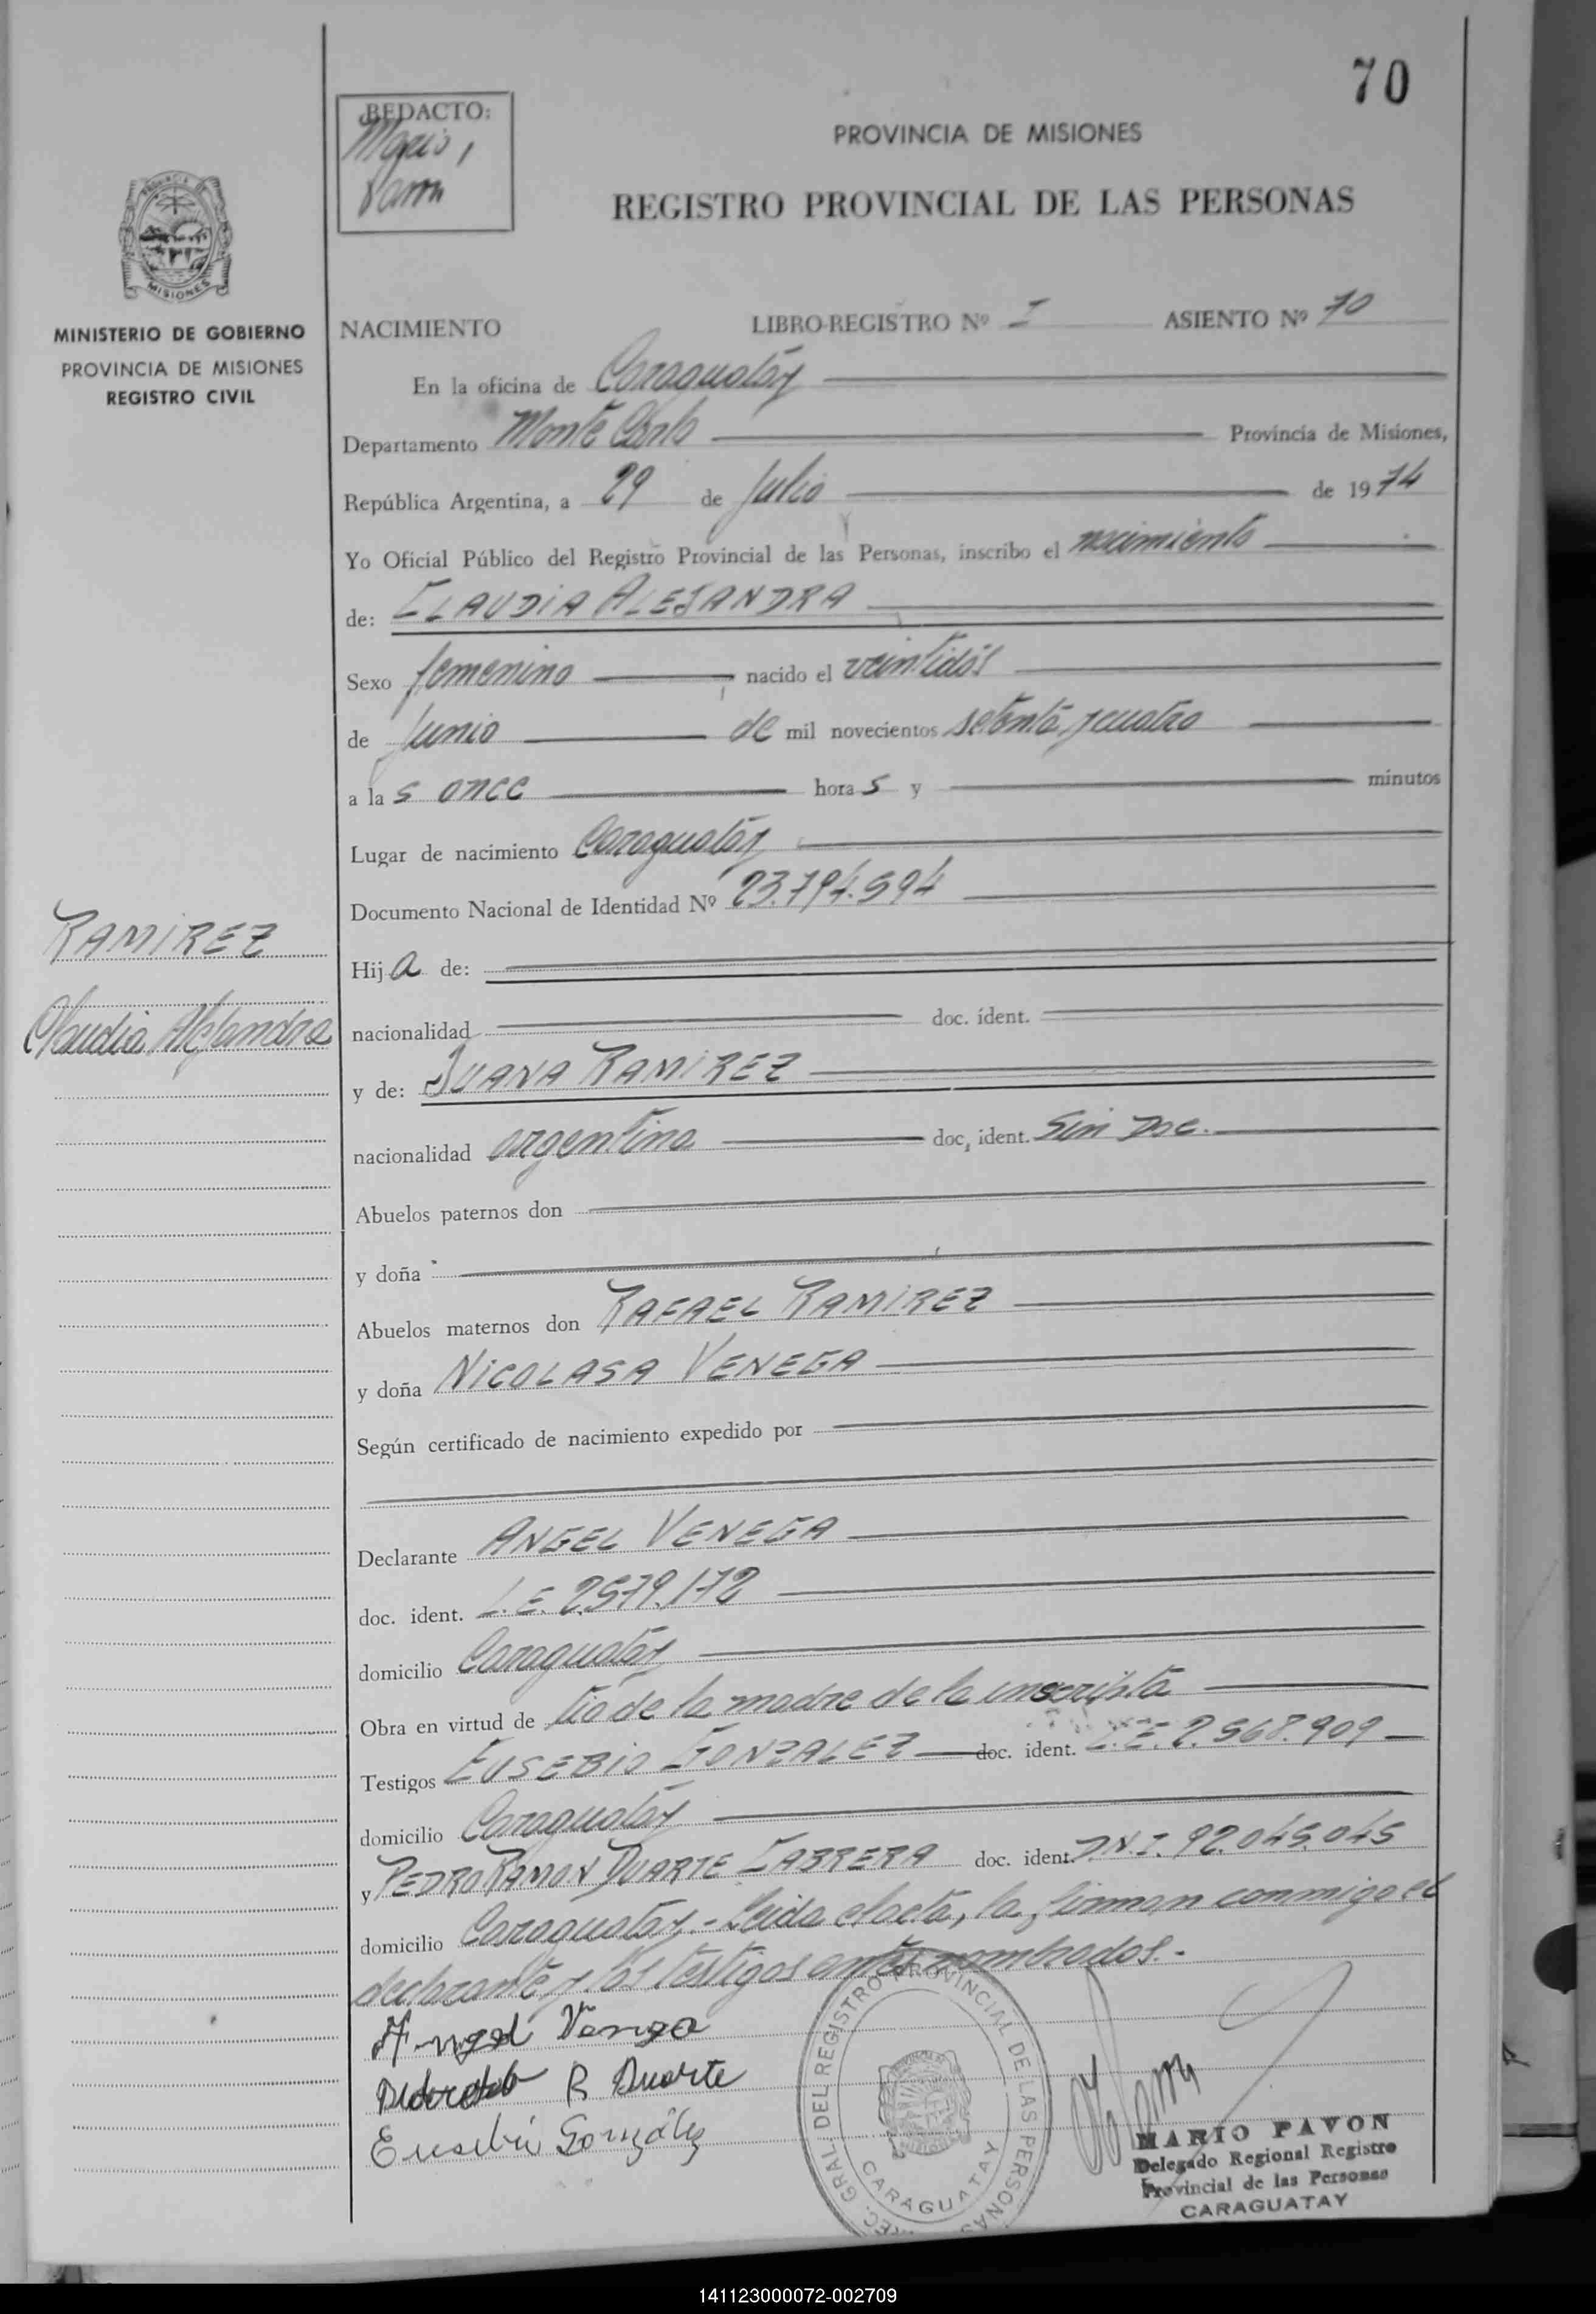 70
REDACTO:
Mario
Pavon
PROVINCIA DE MISIONES
REGISTRO PROVINCIAL DE LAS PERSONAS
MISIONES
MINISTERIO DE GOBIERNO
PROVINCIA DE MISIONES
REGISTRO CIVIL
NACIMIENTO LIBRO-REGISTRO Nº I ASIENTO Nº 70
En la oficina de Caraguatay
Departamento Monte Carlo Provincia de Misiones,
República Argentina, a 29 de Julio de 1974
Yo Oficial Público del Registro Provincial de las Personas, inscribo el nacimiento
de: CLAUDIA ALEJANDRA
Sexo femenino nacido el veintidós
de Junio de mil novecientos setenta y cuatro
a las once horas y minutos
Lugar de nacimiento Caraguatay
Documento Nacional de Identidad Nº 23.794.594
RAMIREZ
Claudia Alejandra
Hija de:
nacionalidad doc. ident.
y de: JUANA RAMIREZ
nacionalidad argentina doc. ident. Sin Doc.
Abuelos paternos don
y doña
Abuelos maternos don RAFAEL RAMIREZ
y doña NICOLASA VENEGA
Según certificado de nacimiento expedido por
Declarante ANGEL VENEGA
doc. ident. L.E. 2.579.172
domicilio Caraguatay
Obra en virtud de tio de la madre de la inscripta
Testigos EUSEBIO GONZALEZ doc. ident. L.E. 2.568.909
domicilio Caraguatay
y PEDRO RAMON DUARTE CABRERA doc. ident. D.N.I. 92.045.045
domicilio Caraguatay.- Leida el acta, la firman conmigo el
declarante y los testigos antes nombrados.-
Angel Venega
R Duarte
Eusebio González
GRAL. DEL REGISTRO PROVINCIAL DE LAS PERSONAS
CARAGUATAY
MARIO PAVON
Delegado Regional Registro
Provincial de las Personas
CARAGUATAY
141123000072-002709